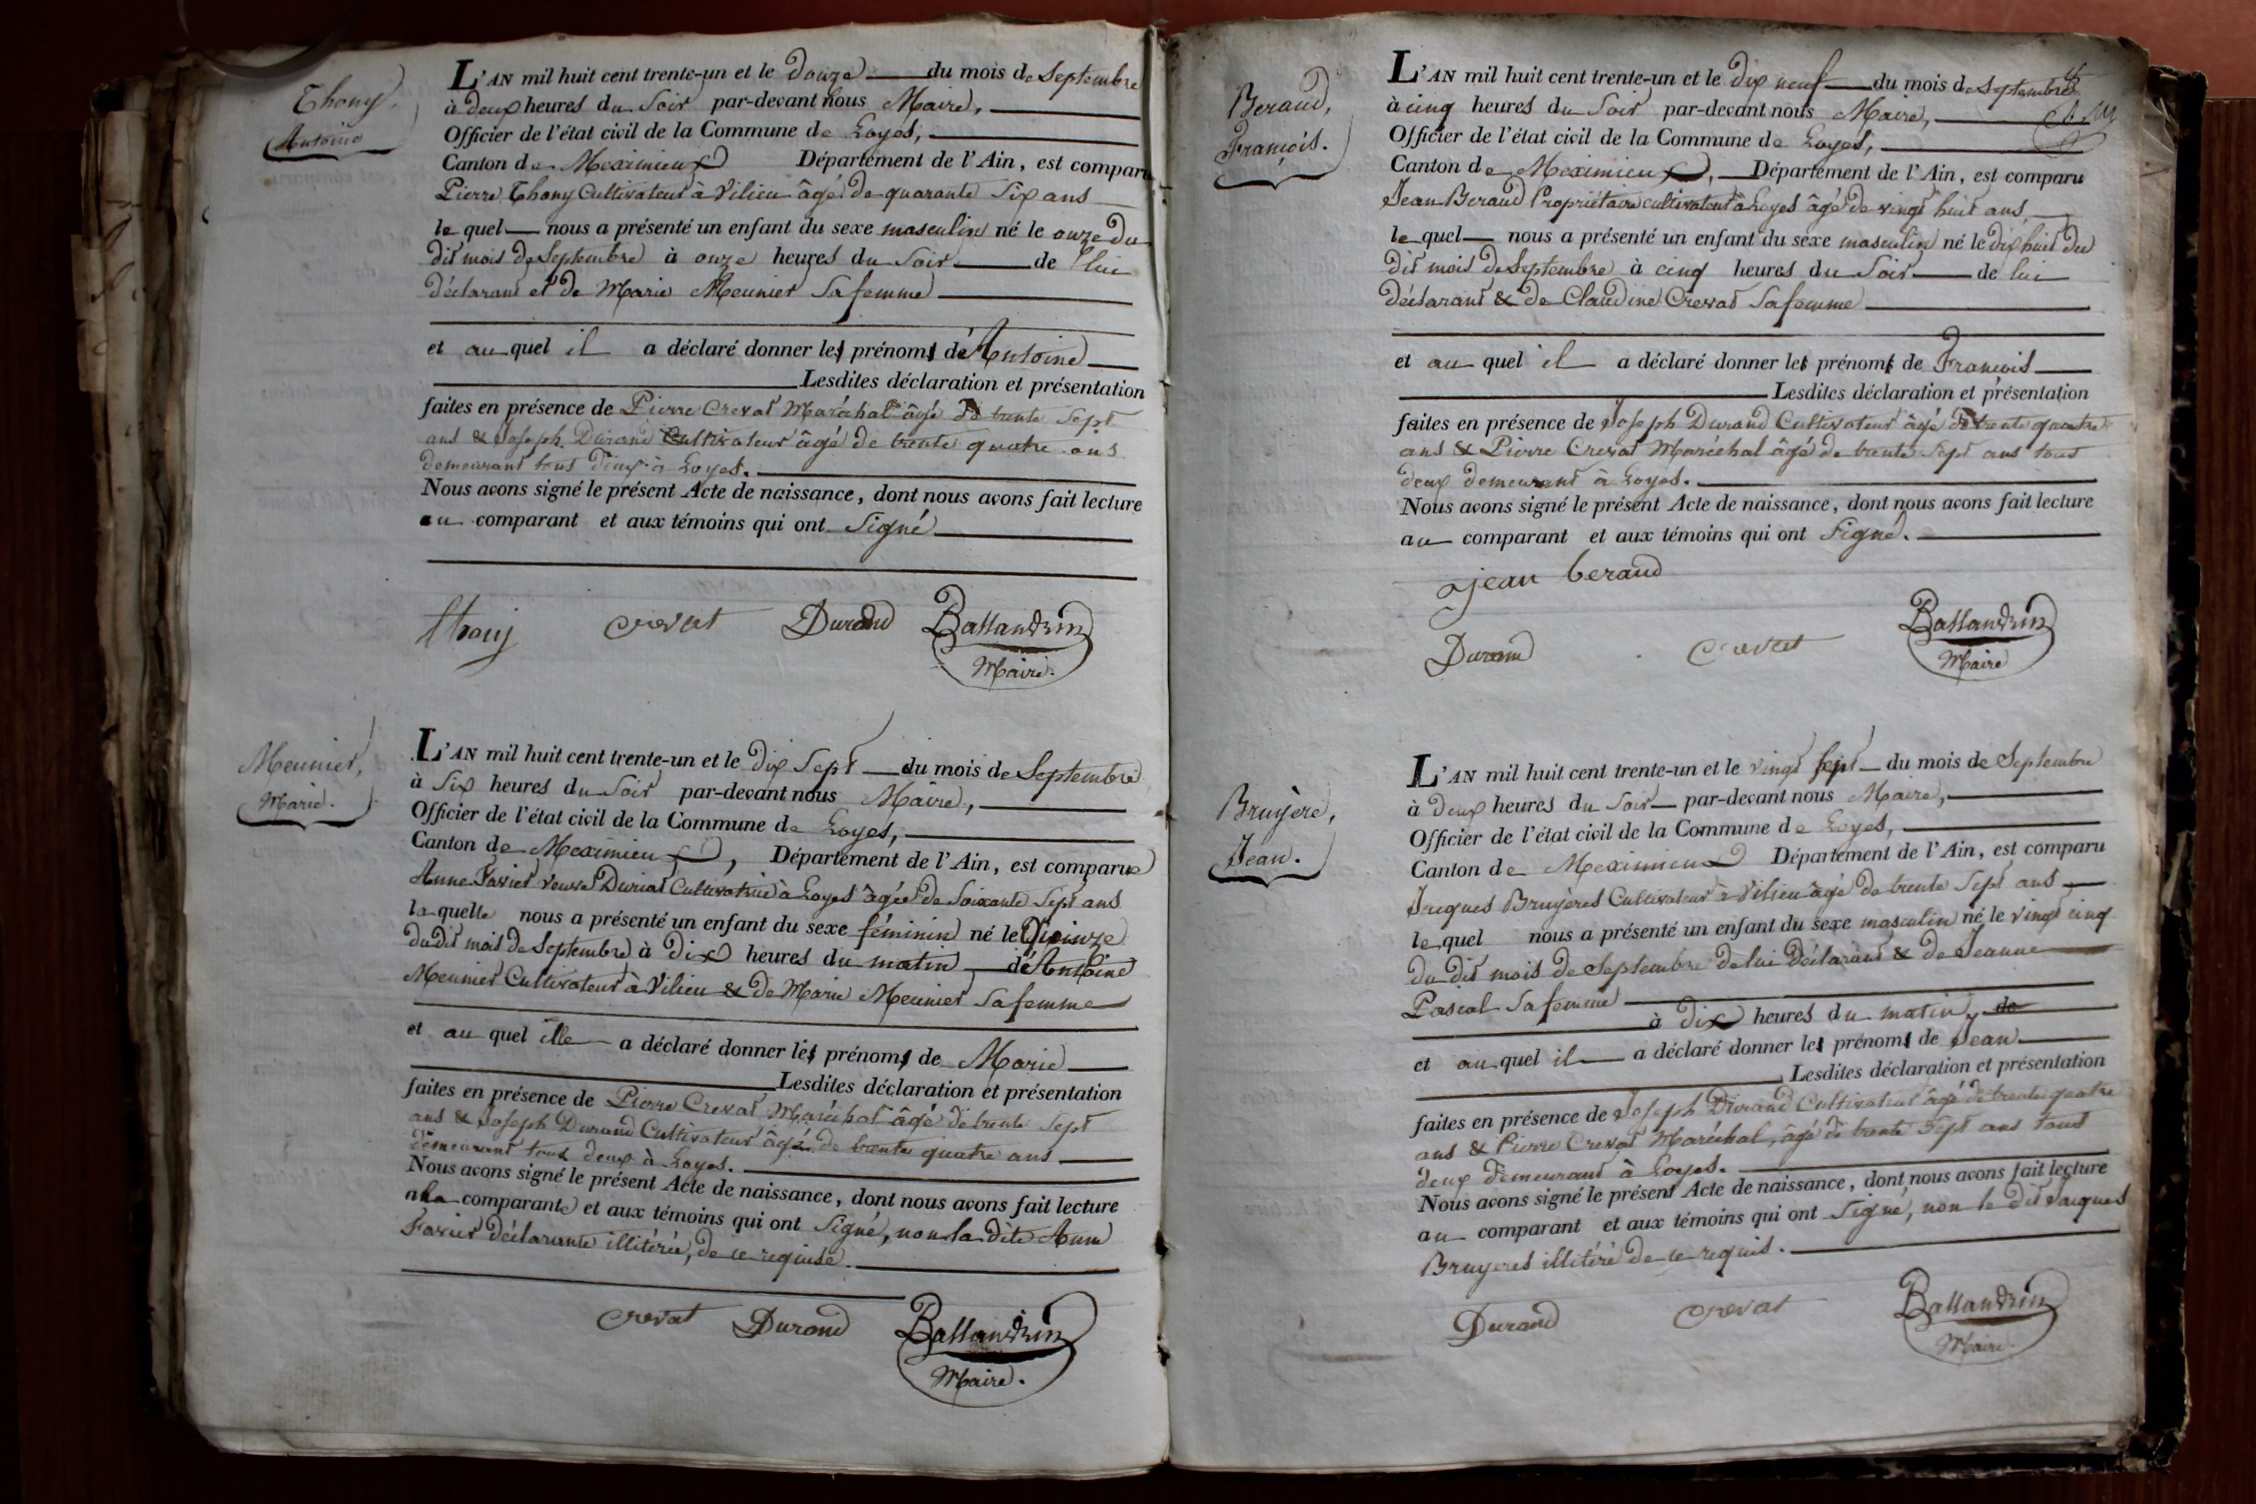 Thony,
Antoine
L'AN mil huit cent trente-un et le douze du mois de Septembre
à deux heures du Soir par-devant nous Maire,
Officier de l'état civil de la Commune de Loyes,
Canton de Meximieux Département de l'Ain, est comparu
Pierre Thony Cultivateur à Vilieu âgé de quarante Six ans
le quel nous a présenté un enfant du sexe masculin né le onze du
dit mois de Septembre à onze heures du Soir de lui
déclarant et de Marie Meunier Sa femme
et au quel il a déclaré donner les prénoms de Antoine
Lesdites déclaration et présentation
faites en présence de Pierre Crevat Maréchal âgé de trente Sept
ans & Joseph Durand Cultivateur âgé de trente quatre ans
demeurant tous deux à Loyes.
Nous avons signé le présent Acte de naissance, dont nous avons fait lecture
au comparant et aux témoins qui ont Signé
thony crevat Durand Ballandrin
Maire.
Meunier,
Marie.
L'AN mil huit cent trente-un et le dix Sept du mois de Septembre
à Six heures du Soir par-devant nous Maire,
Officier de l'état civil de la Commune de Loyes,
Canton de Meximieux, Département de l'Ain, est comparue
Anne Favier veuve Duriat Cultivatrice à Loyes âgée de Soixante Sept ans
la quelle nous a présenté un enfant du sexe féminin né le Quinze
du dit mois de Septembre à dix heures du matin de Antoine
Meunier Cultivateur à Vilieu & de Marie Meunier Sa femme
et au quel ille a déclaré donner les prénoms de Marie
Lesdites déclaration et présentation
faites en présence de Pierre Crevat Maréchal âgé de trente Sept
ans & Joseph Durand Cultivateur âgé de trente quatre ans
demeurant tous deux à Loyes.
Nous avons signé le présent Acte de naissance, dont nous avons fait lecture
a la comparante et aux témoins qui ont Signé, non la dite Anne
Favier déclarante illitérée, de ce requise.
crevat Durand Ballandrin
Maire.
Beraud,
François.
L'AN mil huit cent trente-un et le dix neuf du mois de Septembre
à cinq heures du Soir par-devant nous Maire,
Officier de l'état civil de la Commune de Loyes,
Canton de Meximieux, Département de l'Ain, est comparu
Jean Beraud Propriétaire cultivateur à Loyes âgé de vingt huit ans,
le quel nous a présenté un enfant du sexe masculin né le dix huit du
dit mois de Septembre à cinq heures du Soir de lui
déclarant & de Claudine Crevat Sa femme
et au quel il a déclaré donner les prénoms de François
Lesdites déclaration et présentation
faites en présence de Joseph Durand Cultivateur âgé de trente quatre
ans & Pierre Crevat Maréchal âgé de trente Sept ans tous
deux demeurant à Loyes.
Nous avons signé le présent Acte de naissance, dont nous avons fait lecture
au comparant et aux témoins qui ont Signé.
jean beraud
Durand crevat Ballandrin
Maire
Bruyère,
Jean.
L'AN mil huit cent trente-un et le vingt Sept du mois de Septembre
à deux heures du Soir par-devant nous Maire,
Officier de l'état civil de la Commune de Loyes,
Canton de Meximieux Département de l'Ain, est comparu
Jacques Bruyères Cultivateur à Vilieu âgé de trente Sept ans
le quel nous a présenté un enfant du sexe masculin né le vingt cinq
du dit mois de Septembre de lui déclarant & de Jeanne
Pascal Sa femme
à dix heures du matin, de
et au quel il a déclaré donner les prénoms de Jean
Lesdites déclaration et présentation
faites en présence de Joseph Durand Cultivateur âgé de trente quatre
ans & Pierre Crevat Maréchal, âgé de trente Sept ans tous
deux demeurant à Loyes.
Nous avons signé le présent Acte de naissance, dont nous avons fait lecture
au comparant et aux témoins qui ont Signé, non le dit Jacques
Bruyeres illitéré de ce requis.
Durand crevat Ballandrin
Maire.